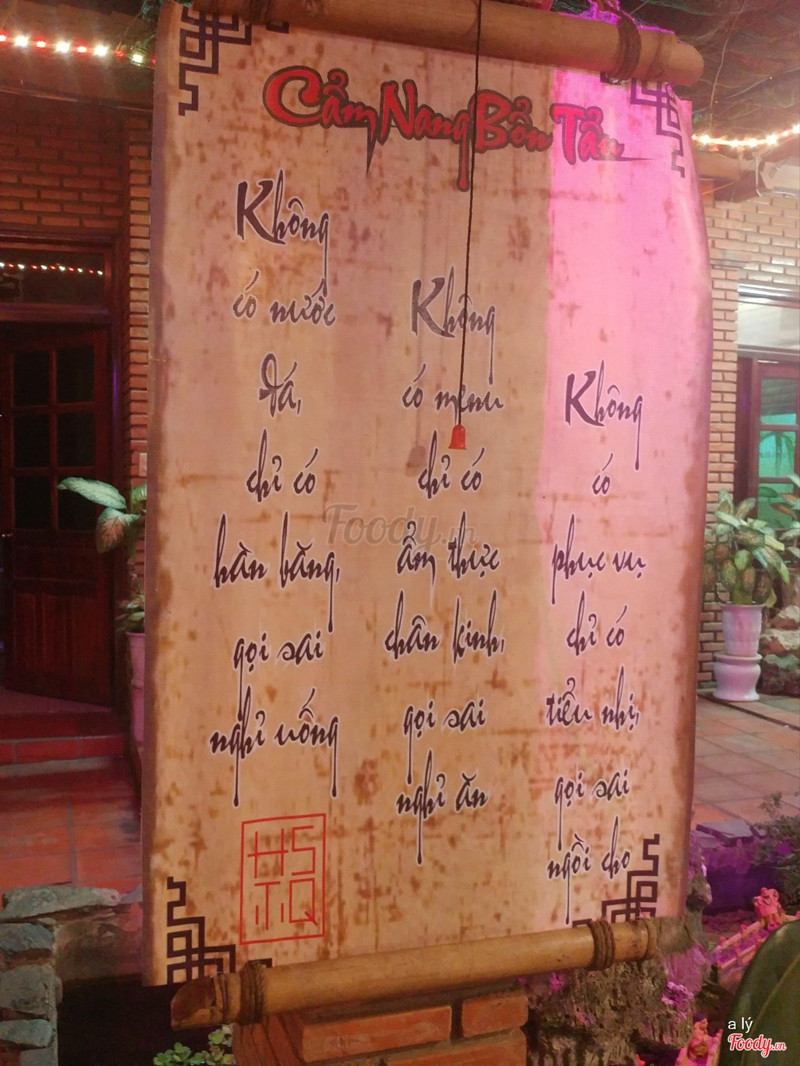 Cẩm Nang Bổn Tẩu
Không
có nước
đá,
chỉ có
hàn băng,
gọi sai
nghỉ uống
Không
có menu
chỉ có
ẩm thực
chân kinh,
gọi sai
nghỉ ăn
Không
có
phục vụ
chỉ có
tiểu nhị,
gọi sai
ngồi chờ
HS
TQ
Foody.vn
a lý
Foody.vn